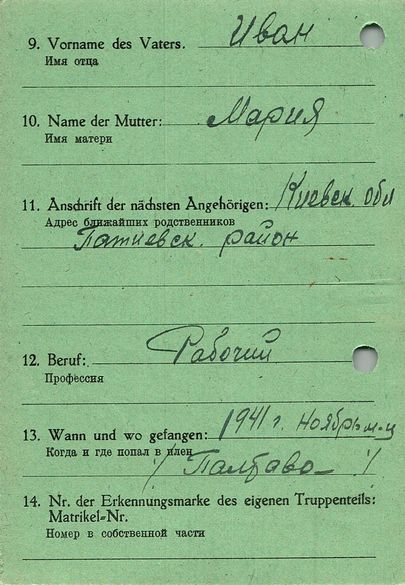 9. Vorname des Vaters. Иван
Имя отца
10. Name der Mutter: Мария
Имя матери
11. Anschrift der nächsten Angehörigen: Киевск. обл
Адрес ближайших родственников
район
12. Beruf: Рабочий
Профессия
13. Wann und wo gefangen: 1941 г. Ноябрь м-ц
Когда и где попал в плен
/ Полтава /
14. Nr. der Erkennungsmarke des eigenen Truppenteils:
Matrikel-Nr.
Номер в собственной части